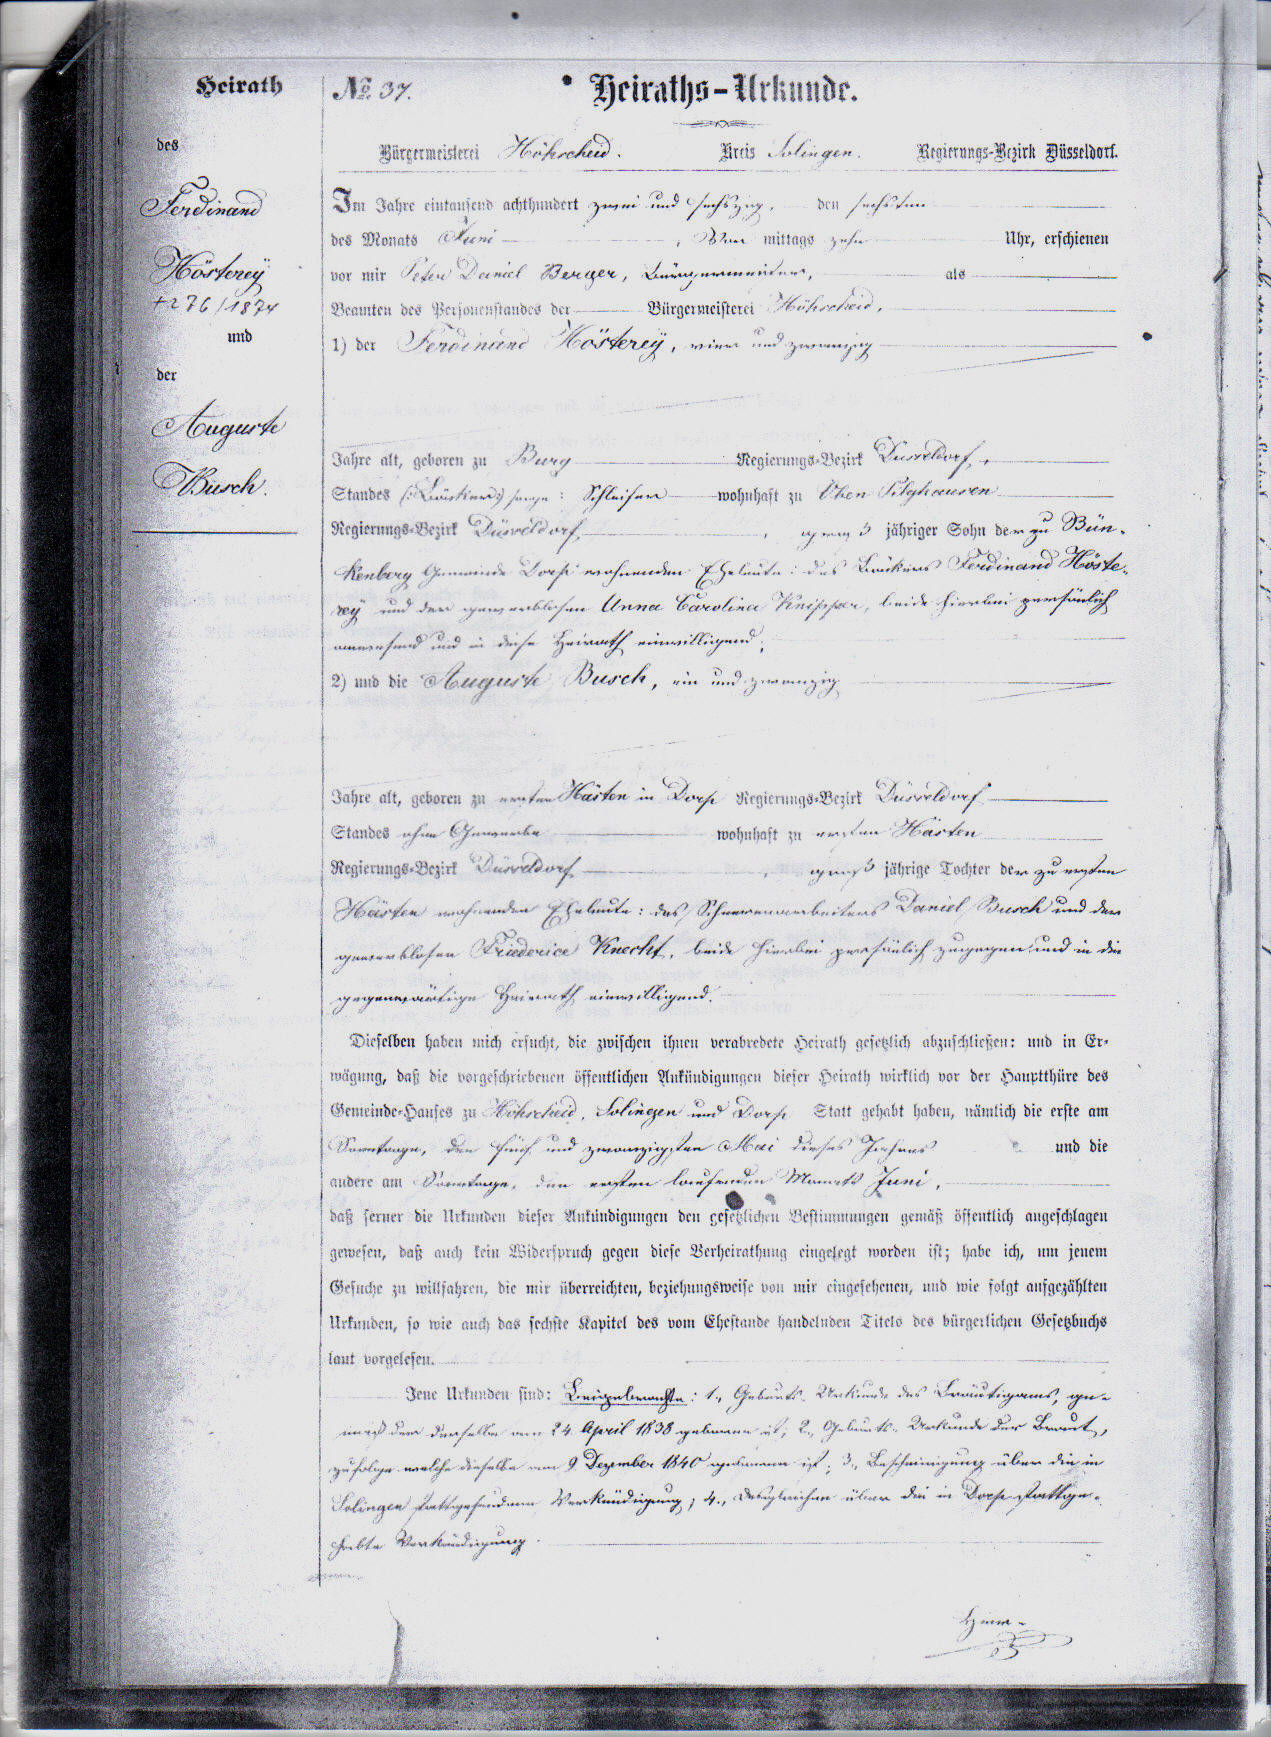 Heirath
des
Ferdinand
Hösterey
+ 276/1874
und
der
Auguste
Busch.
No. 37.
Heiraths-Urkunde.
Bürgermeisterei Höhscheid. Kreis Solingen. Regierungs-Bezirk Düsseldorf.
Im Jahre eintausend achthundert zwei und sechszig, den sechsten
des Monats Juni, Vor mittags zehn Uhr, erschienen
vor mir Peter Daniel Berger, Bürgermeister, als
Beamten des Personenstandes der Bürgermeisterei Höhscheid,
1) der Ferdinand Hösterey, vier und zwanzig
Jahre alt, geboren zu Burg Regierungs-Bezirk Düsseldorf,
Standes Schleifer wohnhaft zu Oben Pilghausen
Regierungs-Bezirk Düsseldorf, groß jähriger Sohn der zu Bün-
kenberg Gemeinde Dorp wohnenden Eheleute: des Bäckers Ferdinand Höste-
rey und der gewerblosen Anna Carolina Knipper, beide hierbei persönlich
anwesend und in diese Heirath einwilligend;
2) und die Auguste Busch, ein und zwanzig
Jahre alt, geboren zu ersten Hästen in Dorp Regierungs-Bezirk Düsseldorf
Standes ohne Gewerbe wohnhaft zu ersten Hästen
Regierungs-Bezirk Düsseldorf, groß jährige Tochter der zu ersten
Hästen wohnenden Eheleute: des Scheerenarbeiters Daniel Busch und der
gewerblosen Friederica Knecht, beide hierbei persönlich zugegen und in die
gegenwärtige Heirath einwilligend.
Dieselben haben mich ersucht, die zwischen ihnen verabredete Heirath gesetzlich abzuschließen: und in Er-
wägung, daß die vorgeschriebenen öffentlichen Ankündigungen dieser Heirath wirklich vor der Hauptthüre des
Gemeinde-Hauses zu Höhscheid, Solingen und Dorp Statt gehabt haben, nämlich die erste am
Sonntage, den fünf und zwanzigsten Mai dieses Jahres und die
andere am Sonntage, den ersten laufenden Monats Juni,
daß ferner die Urkunden dieser Ankündigungen den gesetzlichen Bestimmungen gemäß öffentlich angeschlagen
gewesen, daß auch kein Widerspruch gegen diese Verheirathung eingelegt worden ist; habe ich, um jenem
Gesuche zu willfahren, die mir überreichten, beziehungsweise von mir eingesehenen, und wie folgt aufgezählten
Urkunden, so wie auch das sechste Kapitel des vom Ehestande handelnden Titels des bürgerlichen Gesetzbuchs
laut vorgelesen.
Jene Urkunden sind: Beigebrachte: 1., Geburts-Urkunde des Bräutigams, ge-
mäß der derselbe am 24 April 1838 geboren ist; 2., Geburts-Urkunde der Braut,
zufolge welche dieselbe am 9 Dezember 1840 geboren ist; 3., Bescheinigung über die in
Solingen stattgefundene Verkündigung; 4., desgleichen über die in Dorp stattge-
habte Verkündigung.